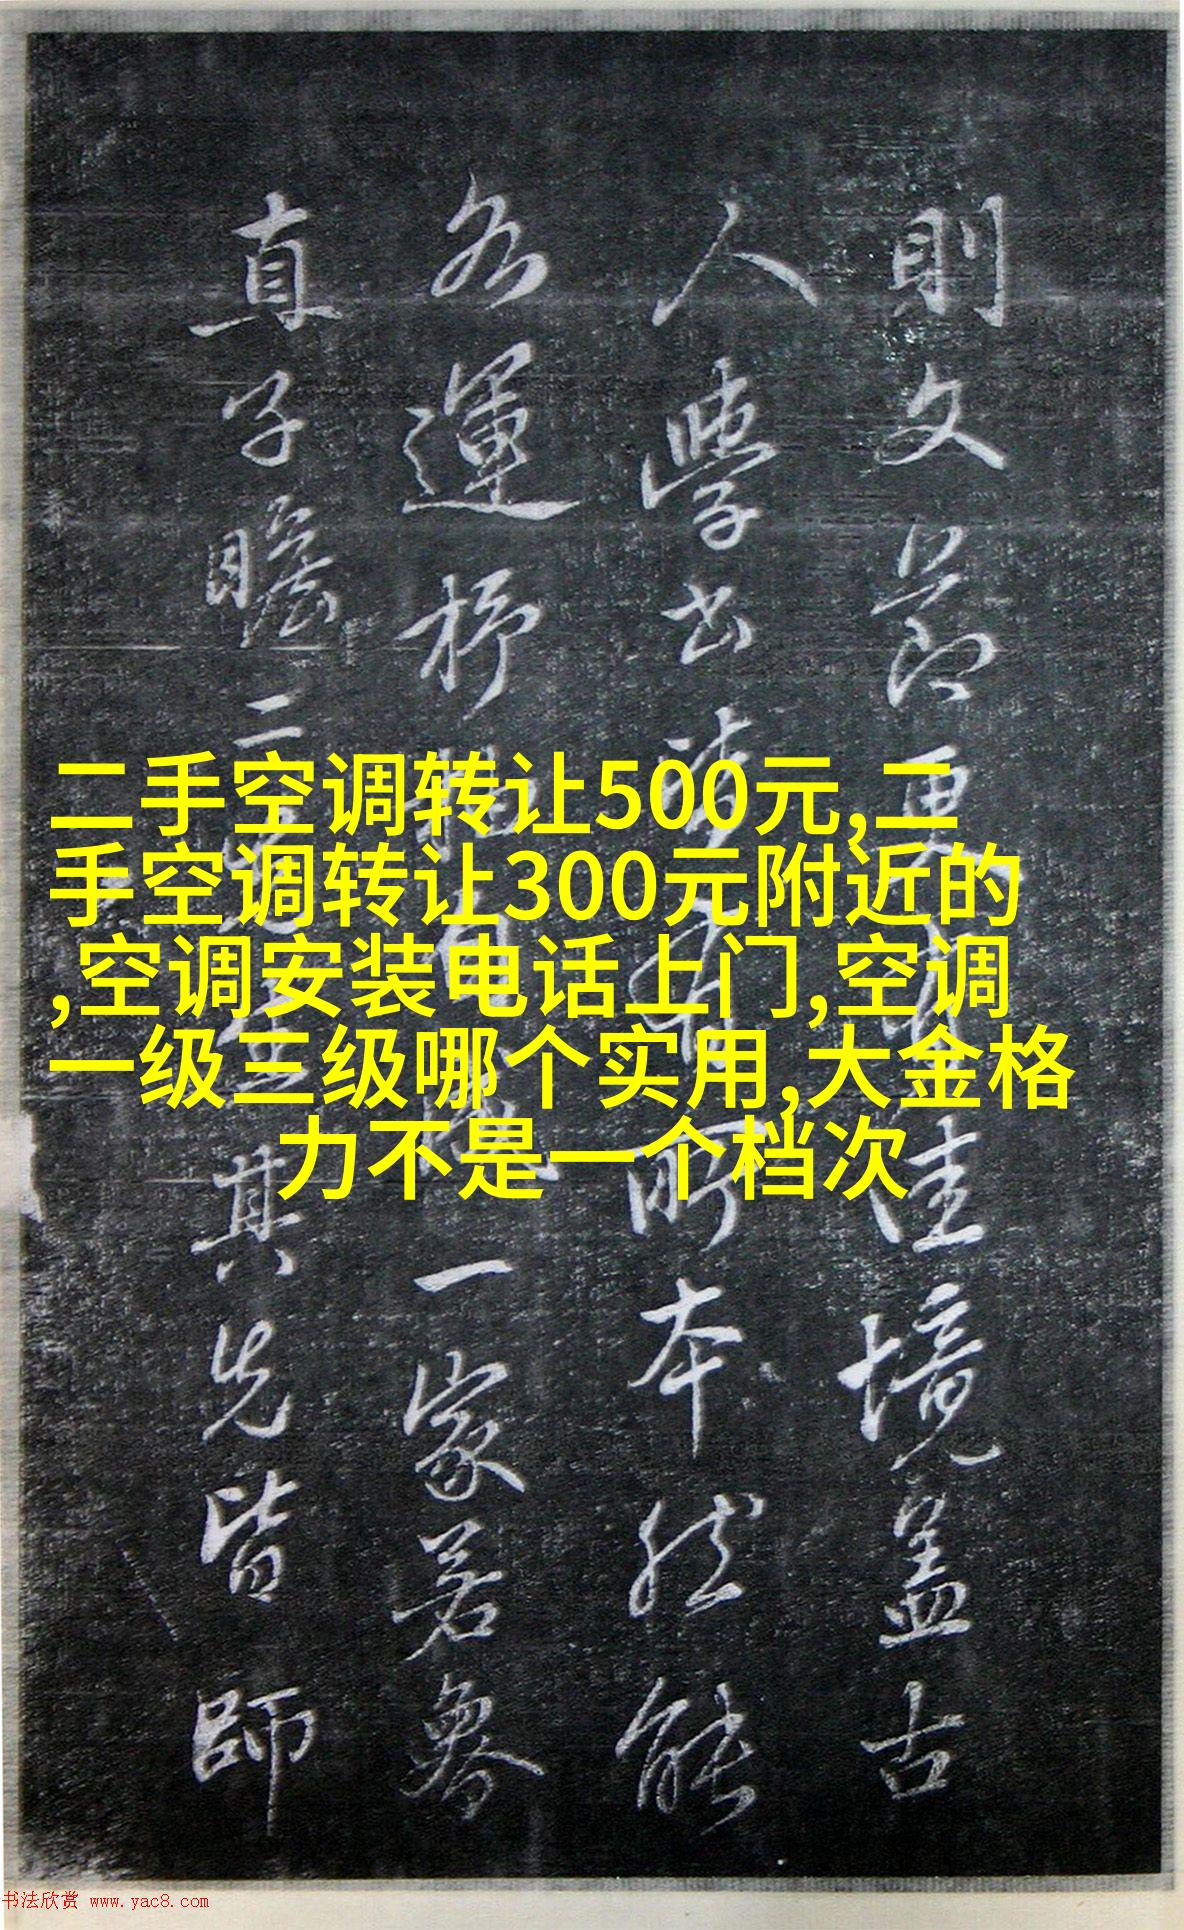 二手空调转让500元,二
手空调转让300元附近的
,空调安装电话上门,空调
一级三级哪个实用,大金格
力不是一个档次
則文節更佳境盖古
人學書皆有所本然能
各運杼自一家若魯
直子瞻二其先皆師
书法欣赏 www.yac8.com